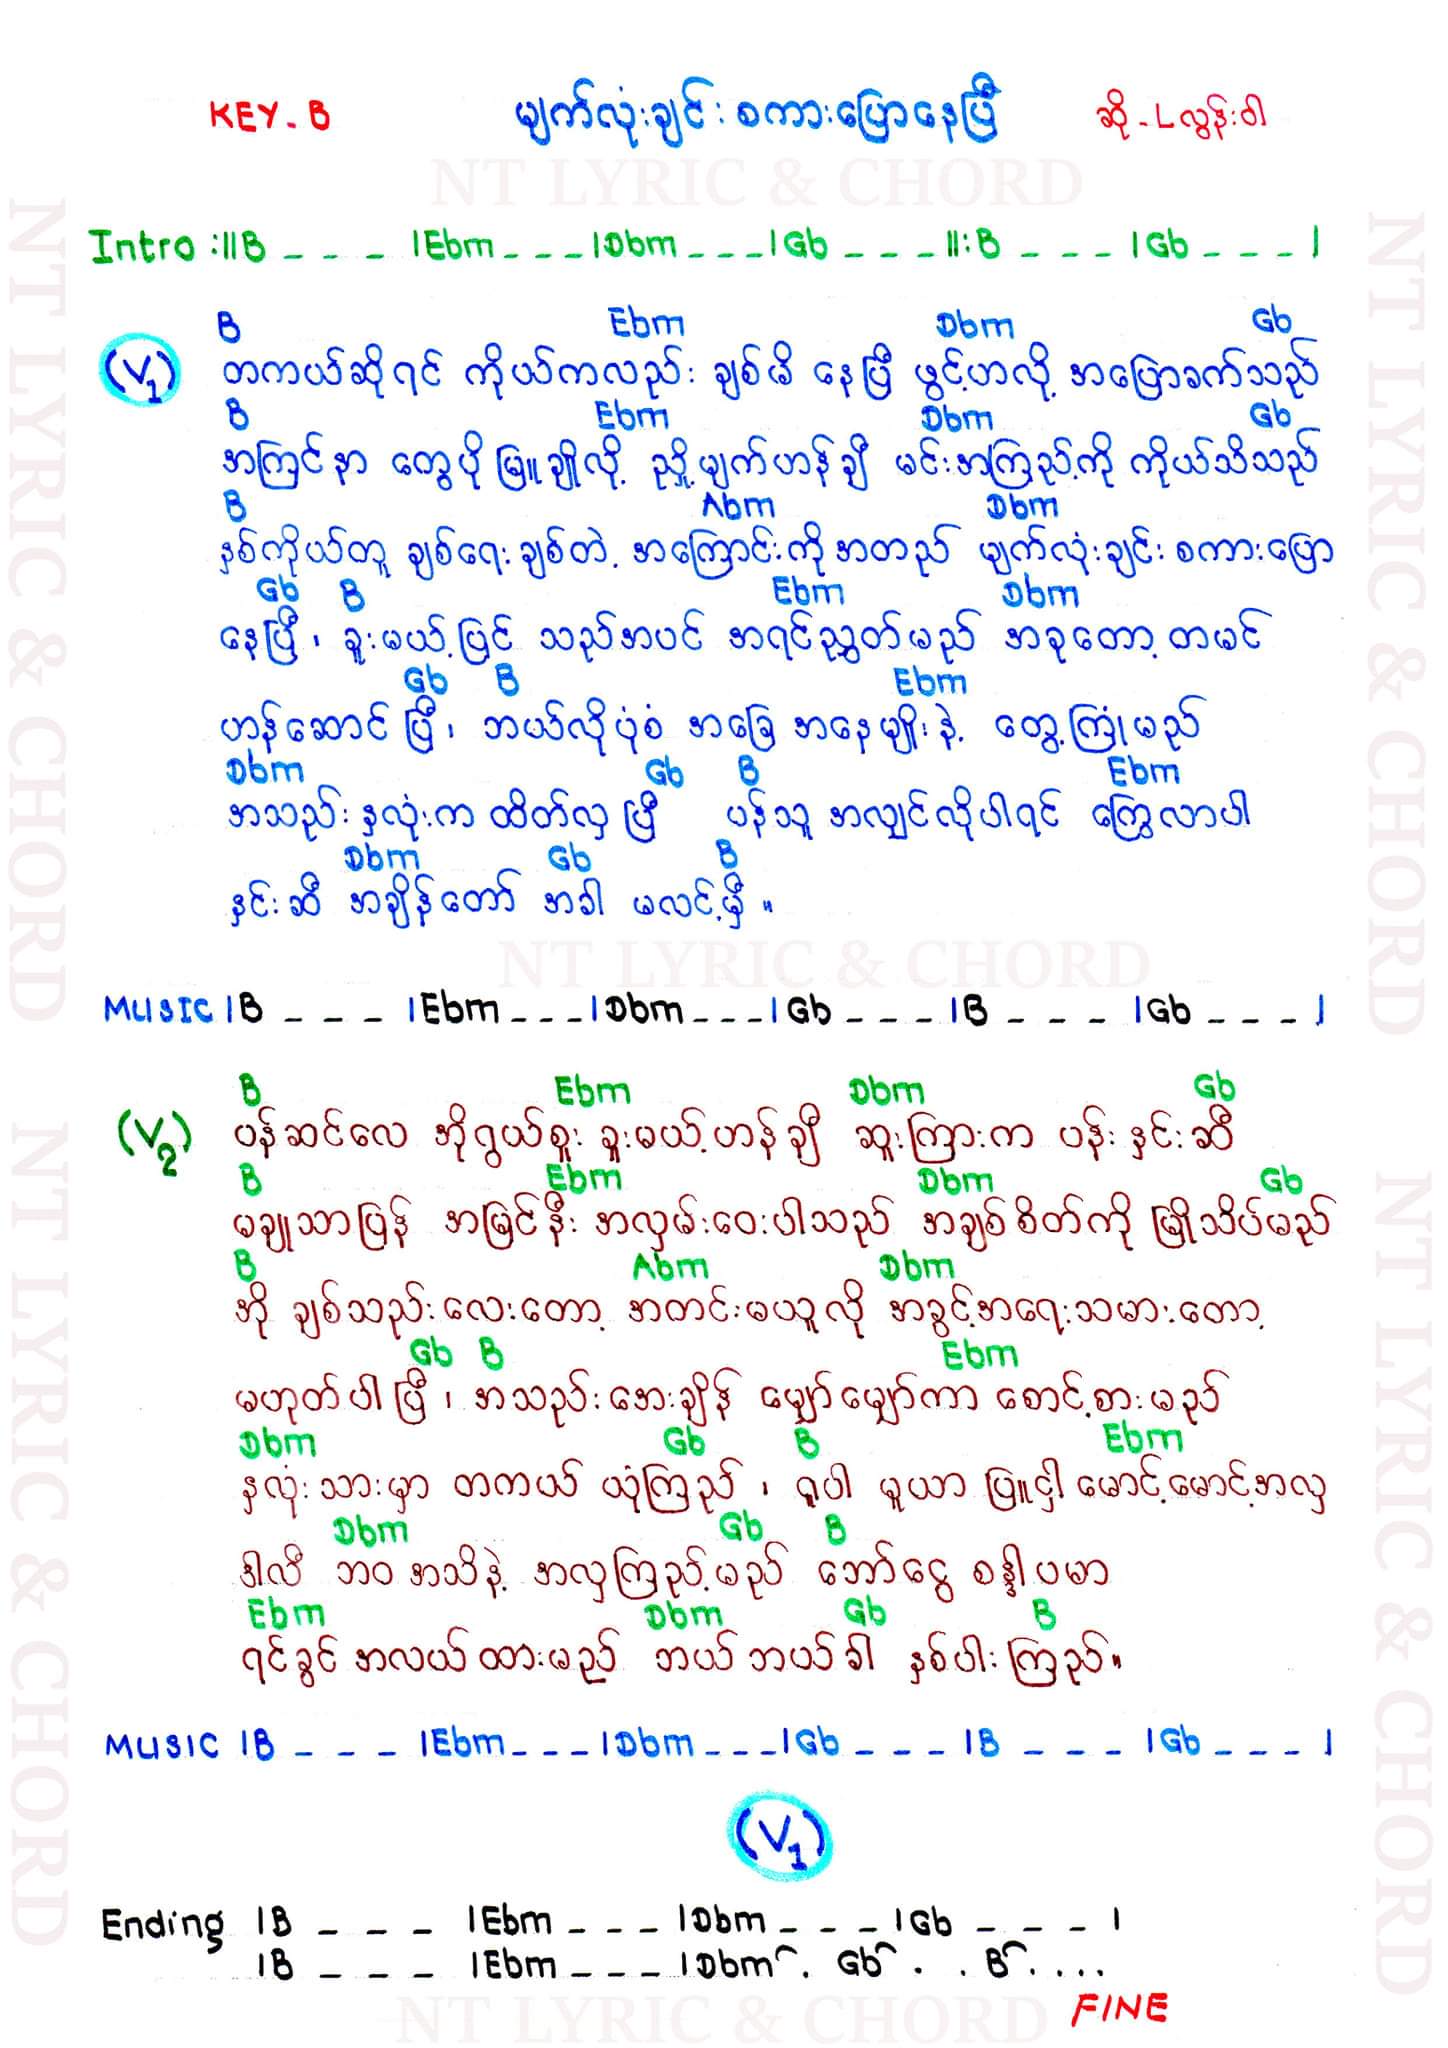 KEY - B မျက်လုံးချင်းစကားပြောနေပြီ ဆို - L လွန်းဝါ
NT LYRIC & CHORD
Intro :||B _ _ _ |Ebm _ _ _ |Dbm _ _ _ |Gb _ _ _ ||:B _ _ _ |Gb _ _ _ |
B Ebm Dbm Gb
(V1) တကယ်ဆိုရင် ကိုယ်ကလည်း ချစ်မိ နေပြီ ဖွင့်ဟလို့ အပြောခက်သည်
B Ebm Dbm Gb
အကြင်နာ တွေပို မြူချိုလို့ ညှို့မျက်ဟန်ချီ မင်းအကြည့်ကို ကိုယ်သိသည်
B Abm Dbm
နှစ်ကိုယ်တူ ချစ်ရေးချစ်တဲ့ အကြောင်းကိုအတည် မျက်လုံးချင်း စကားပြော
Gb B Ebm Dbm
နေပြီ ၊ ခူးမယ့်ပြင် သည်အပင် အရင်ညွှတ်မည် အခုတော့ တမင်
Gb B Ebm
ဟန်ဆောင် ပြီ ၊ ဘယ်လိုပုံစံ အခြေ အနေမျိုးနဲ့ တွေ့ကြုံမည်
Dbm Gb B Ebm
အသည်းနှလုံးက ထိတ်လှ ပြီ ပန်သူ အလျှင်လိုပါရင် ကြွေလာပါ
Dbm Gb B
နှင်းဆီ အချိန်တော် အခါ မလင့်မှီ ။
NT LYRIC & CHORD
MUSIC |B _ _ _ |Ebm _ _ _ |Dbm _ _ _ |Gb _ _ _ |B _ _ _ |Gb _ _ _ |
B Ebm Dbm Gb
(V2) ပန်ဆင်လေ အိုဂွယ်စူး ခူးမယ့်ဟန်ချီ ဆူးကြားက ပန်းနှင်းဆီ
B Ebm Dbm Gb
မချူသာပြန် အမြင်နီး အလှမ်းဝေးပါသည် အချစ်စိတ်ကို မြိုသိပ်မည်
B Abm Dbm
အို ချစ်သည်းလေးတော့ အတင်းမယူလို အခွင့်အရေးသမားတော့
Gb B Ebm
မဟုတ်ပါ ပြီ ၊ အသည်းအေးချိန် မျှော်မျှော်ကာ စောင့်စားမည်
Dbm Gb B Ebm
နှလုံးသားမှာ တကယ် ယုံကြည် ၊ ရူပါ မူယာ ပြူငှါ မောင့်မောင့်အလှ
Dbm Gb B
ဒါလီ ဘဝအသိနဲ့ အလှကြည့်မည် ဘော်ငွေ စန္ဒါပမာ
Ebm Dbm Gb B
ရင်ခွင် အလယ်ထားမည် ဘယ်ဘယ်ခါ နှစ်ပါးကြည်။
MUSIC |B _ _ _ |Ebm _ _ _ |Dbm _ _ _ |Gb _ _ _ |B _ _ _ |Gb _ _ _ |
(V1)
Ending |B _ _ _ |Ebm _ _ _ |Dbm _ _ _ |Gb _ _ _ |
|B _ _ _ |Ebm _ _ _ |Dbm . Gb . . B . . . .
FINE
NT LYRIC & CHORD
NT LYRIC & CHORD
NT LYRIC & CHORD
NT LYRIC & CHORD
NT LYRIC & CHORD